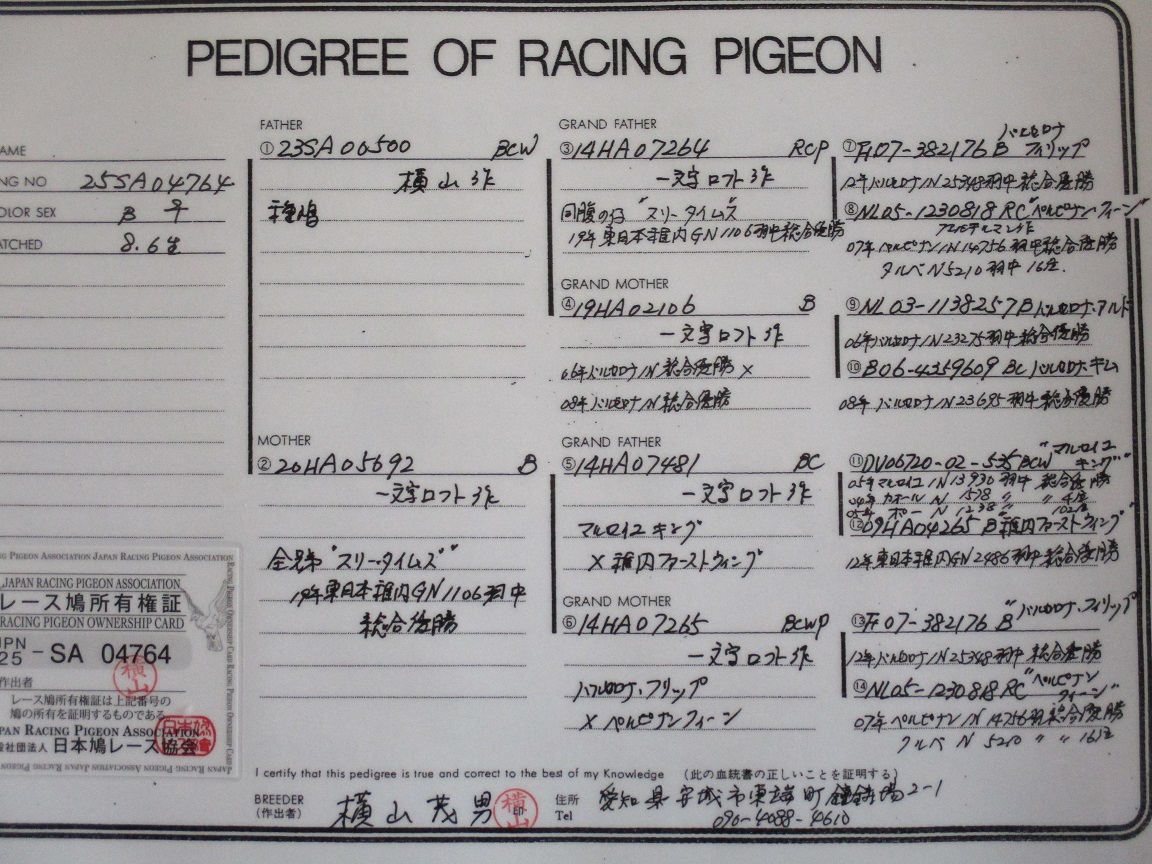 PEDIGREE OF RACING PIGEON
AME
NG NO 25SA04764
OLOR SEX B ♀
ATCHED 8.6生
FATHER
①23SA00500 BCW
横山作
種鳩
MOTHER
②20HA05692 B
一文字ロフト作
全兄弟"スリータイムズ"
19年東日本稚内GN1106羽中
総合優勝
GRAND FATHER
③14HA07264 RCP
一文字ロフト作
同腹の仔"スリータイムズ"
19年東日本稚内GN1106羽中総合優勝
GRAND MOTHER
④19HA02106 B
一文字ロフト作
06年バルセロナIN総合優勝×
08年バルセロナIN総合優勝
GRAND FATHER
⑤14HA07481 BC
一文字ロフト作
マルセイユキング
×稚内ファーストウィング
GRAND MOTHER
⑥14HA07265 BCWP
一文字ロフト作
バルセロナ・フリップ
×ペルピナンクィーン
⑦Fr07-382176 B バルセロナフィリップ
12年バルセロナIN25348羽中総合優勝
⑧NL05-1230818 RC"ペルピナン・クィーン"
07年ペルピナンIN14756羽中総合優勝
タルベN5210羽中16位.
⑨NL03-1138257Bバルセロナ・アルド
06年バルセロナIN23275羽中総合優勝
⑩B06-4359609 BCバルセロナキム
08年バルセロナIN23695羽中総合優勝
⑪DV06720-02-535BCW"マルセイユキング"
05年マルセイユIN13930羽中総合優勝
04年カオールN 1538 〃 〃 4位
05年 ポー N 1238 〃 102位
⑫09HA04265 B稚内ファーストウィング"
12年東日本稚内GN2486羽中総合優勝
⑬Fr07-382176 B"バルセロナ・フィリップ
12年バルセロナIN25348羽中総合優勝
⑭NL05-1230818RC"ペルピナンクィーン"
07年ペルピナンIN14756羽総合優勝
タルベ N 5210 〃 〃 16位
NG PIGEON ASSOCIATION JAPAN RACING PIGEON ASSOCIATION
JAPAN RACING PIGEON ASSOCIATION
レース鳩所有権証
RACING PIGEON OWNERSHIP CARD
JPN
25 - SA 04764
作出者
横山
レース鳩所有権証は上記番号の
鳩の所有を証明するものである
PAN RACING PIGEON ASSOCIATION
社団法人 日本鳩レース協会
I certify that this pedigree is true and correct to the best of my Knowledge (此の血統書の正しいことを証明する)
BREEDER
(作出者)
横山茂男
横山
印
住所
Tel
愛知県安城市東端町鐘鋳場2-1
090-4088-4610